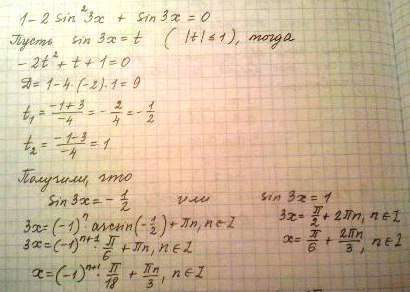 1-2 sin²3x + sin3x = 0
Пусть sin3x = t (|t| ≤ 1), тогда
-2t² + t + 1 = 0
D = 1-4·(-2)·1 = 9
t₁ = (-1+3)/(-4) = -2/4 = -1/2
t₂ = (-1-3)/(-4) = 1
Получили, что
sin3x = -1/2 или sin3x = 1
3x = (-1)ⁿ·arcsin(-1/2) + πn, n∈Z 3x = π/2 + 2πn, n∈Z
3x = (-1)ⁿ⁺¹·π/6 + πn, n∈Z x = π/6 + 2πn/3, n∈Z
x = (-1)ⁿ⁺¹·π/18 + πn/3, n∈Z